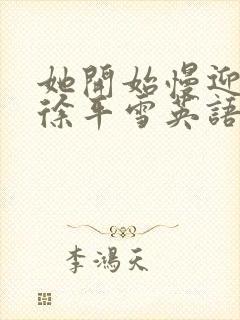 她開始慢迎
徐平雪英語
李鴻天